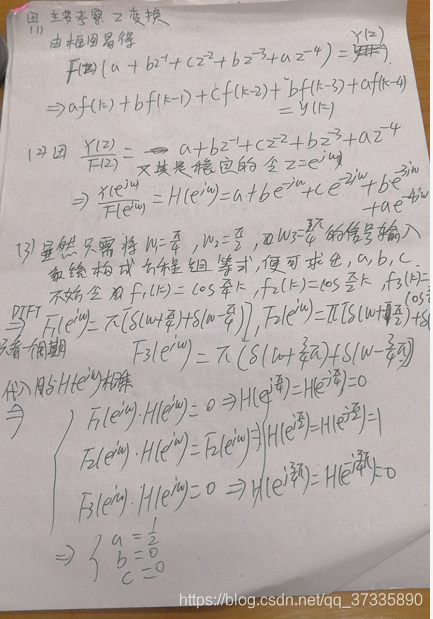 (1) 主要考察Z变换
由框图易得
F(z)(a+bz⁻¹+cz⁻²+bz⁻³+az⁻⁴)=Y(z)
⇒af(k)+bf(k-1)+cf(k-2)+bf(k-3)+af(k-4)
=y(k)
(2)因 Y(z)/F(z) = a+bz⁻¹+cz⁻²+bz⁻³+az⁻⁴
又其是稳定的 令z=e^{jω}
⇒ Y(e^{jω})/F(e^{jω})=H(e^{jω})=a+be^{-jω}+ce^{-2jω}+be^{-3jω}
+ae^{-4jω}
(3)显然只需将ω₁=π/4, ω₂=π/2, ω₃=3π/4的信号输入
系统构成方程组等式,便可求出,a,b,c.
不妨令 f₁(k)=cos π/4 k, f₂(k)=cos π/2 k, f₃(k)=
DTFT ⇒ F₁(e^{jω})=π[δ(ω+π/4)+δ(ω-π/4)], F₂(e^{jω})=π[δ(ω+π/2)+δ(ω
只看一个周期 F₃(e^{jω})=π[δ(ω+3/4π)+δ(ω-3/4π)]
代入用与H(e^{jω})相乘
⇒ F₁(e^{jω})·H(e^{jω})=0⇒H(e^{jπ/4})=H(e^{jπ/4})=0
F₂(e^{jω})·H(e^{jω})=F₂(e^{jω})⇒H(e^{jπ/2})=H(e^{jπ/2})=1
F₃(e^{jω})·H(e^{jω})=0 ⇒H(e^{j3π/4})=H(e^{j3π/4})=0
⇒ { a=1/2
b=0
c=0
https://blog.csdn.net/qq_37335890